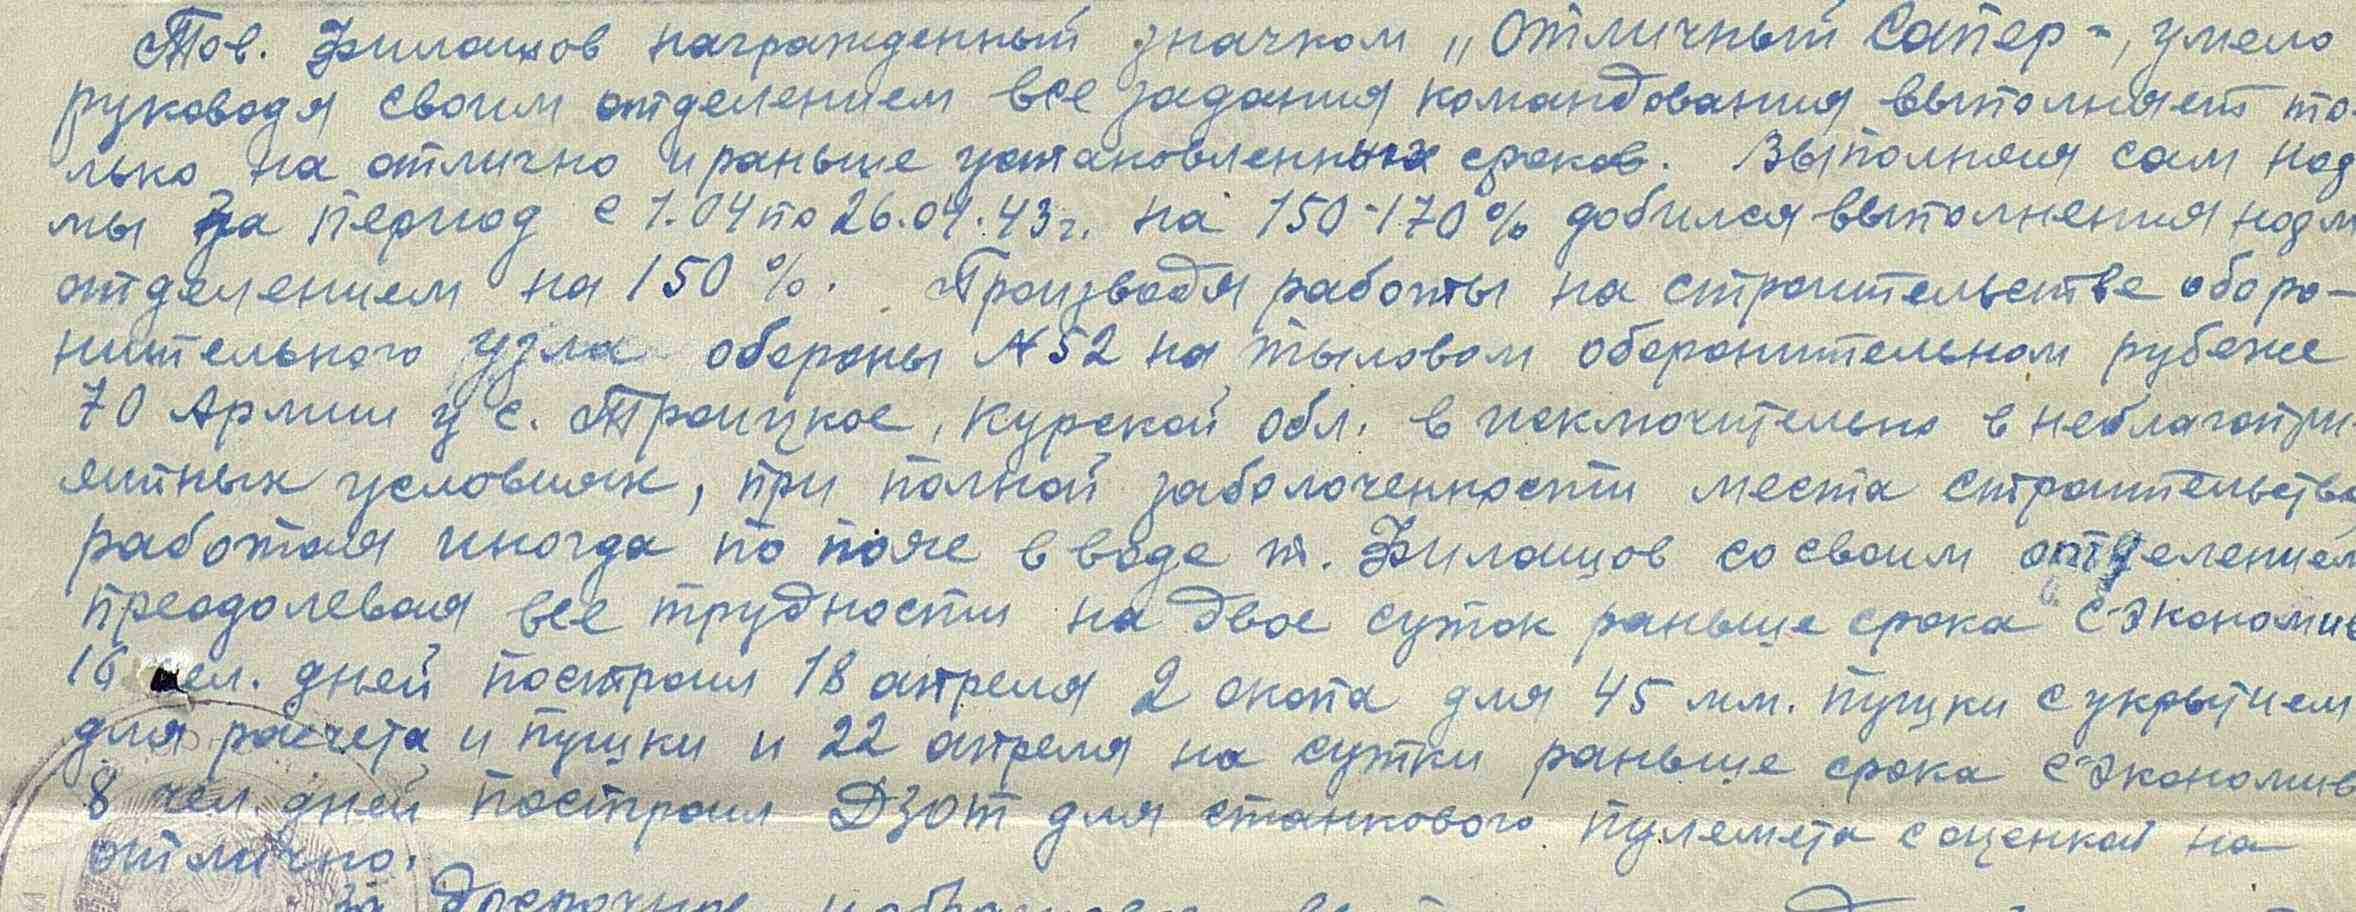 Тов. Филашов награжденный значком „Отличный Сапер", умело
руководя своим отделением все задания командования выполняет то-
лько на отлично и раньше установленных сроков. Выполняя сам нор
мы за период с 1.04 по 26.04.43г. на 150-170% добился выполнения норм
отделением на 150%. Производя работы на строительстве оборо-
нительного узла обороны N52 на тыловом оборонительном рубеже
70 Армии у с. Троицкое, Курской обл. в исключительно в неблагопри-
ятных условиях, при полной заболоченности места строительства
работая иногда по пояс в воде т. Филашов со своим отделением
преодолевая все трудности на двое суток раньше срока сэкономив
16 чел. дней построил 18 апреля 2 окопа для 45 мм. пушки с укрытием
для расчета и пушки и 22 апреля на сутки раньше срока сэкономив
8 чел дней построил ДЗОТ для станкового пулемета с оценкой на
отлично.
За